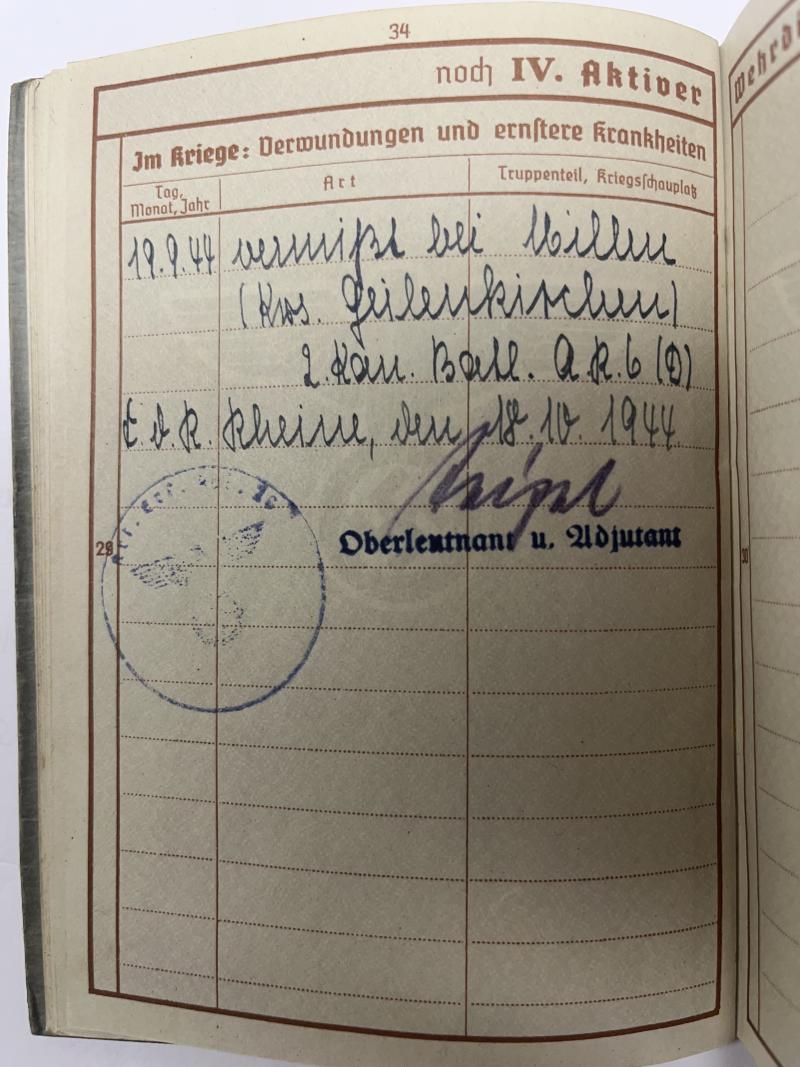 34
noch IV. Aktiver
Wehrd
Im Kriege: Verwundungen und ernstere Krankheiten
Tag, Monat, Jahr
Art
Truppenteil, Kriegsschauplatz
19.9.44 vermißt bei Millen
(Krs. Geilenkirchen)
2. Kan. Batl. A.R. 6 (D)
Rheine, den 18.10.1944
29
Oberleutnant u. Adjutant
30